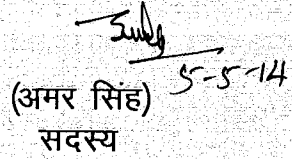 5-5-14
(अमर सिंह)
सदस्य